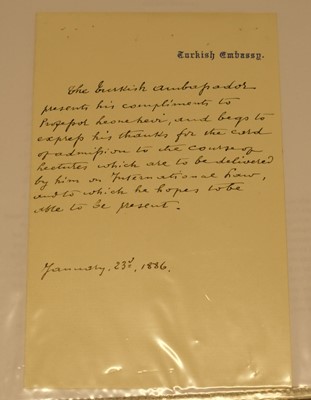 Turkish Embassy.
The Turkish Ambassador
presents his compliments to
Professor and begs to
express his thanks for the card
of admission to the course of
lectures which are to be delivered
by him on International Law,
and to which he hopes to be
able to be present.
January, 23d, 1886.